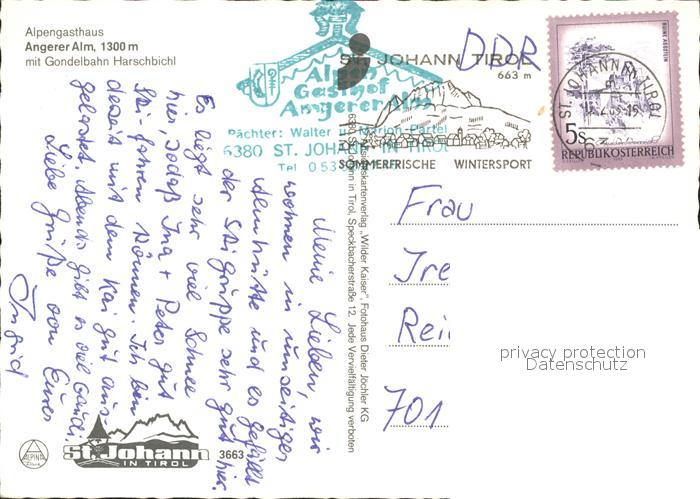 Alpengasthaus
Angerer Alm, 1300 m
mit Gondelbahn Harschbichl
Alpen
Gasthof
Angerer Alm
Pächter: Walter u. Marion Partel
6380 ST. JOHANN IN TIROL
Tel 0 53
ST. JOHANN TIROL
663 m
SOMMERFRISCHE WINTERSPORT
DDR
RUINE AGGSTEIN
5s
REPUBLIK ÖSTERREICH
ST. JOHANN in TIROL
Meine Lieben, wir
wohnen in
und es gefällt
der Skigruppe sehr gut hier.
Es liegt sehr viel Schnee
hier, sodaß Ina + Peter gut
Ski fahren können. Ich bin
derzeit mit dem Kai gut aus-
gelastet. Abends gibt es viel Gaudi.
Liebe Grüße von Eurer
Ingrid
Frau
Ire
Rei
701
privacy protection
Datenschutz
Ansichtskartenverlag „Wilder Kaiser“, Fotohaus Dieter Jöchler KG
6380 St. Johann in Tirol, Speckbacherstraße 12, Jede Vervielfältigung verboten
ALPINA
St. Johann
IN TIROL
3663